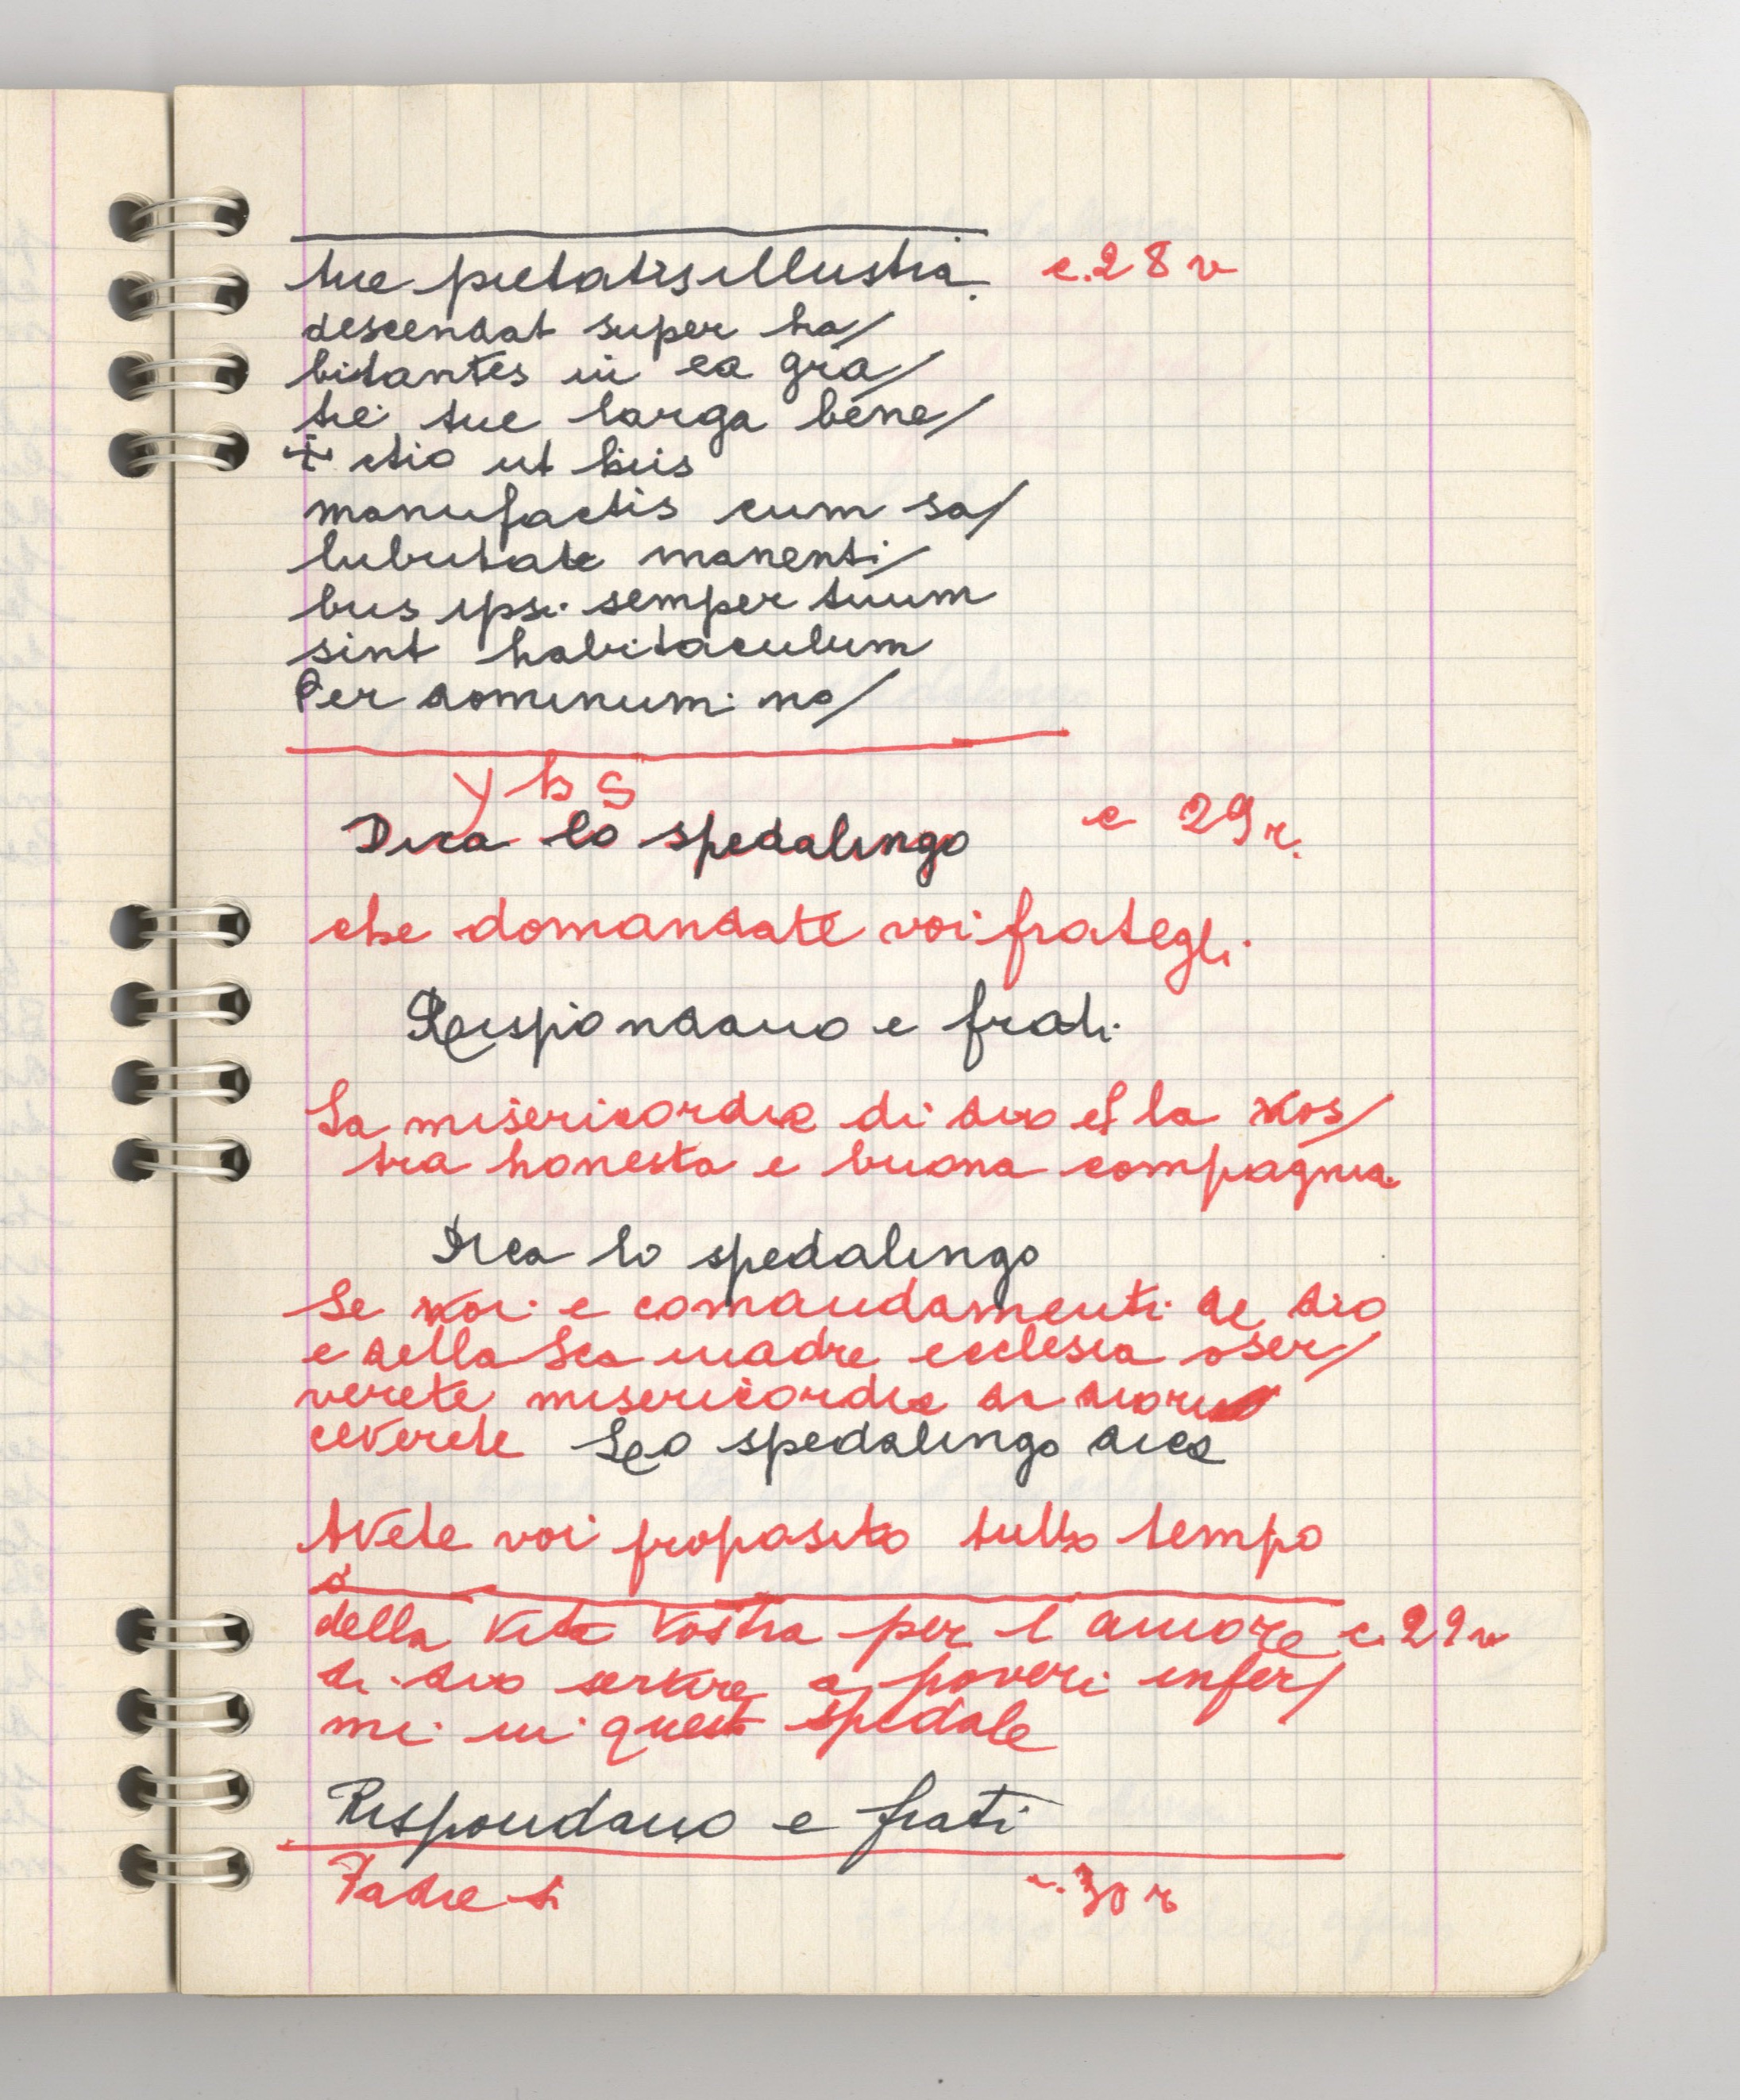 tue pietatis illustra. c. 28 v
descendat super ha/
bitantes in ea gra/
tie tue larga bene/
+ ctio ut hiis
manufactis cum sa/
lubritate manenti/
bus ipsi semper tuum
sint habitaculum
Per dominum no/
y h s
Dica lo spedalingo c 29 r.
che domandate voi frategli.
Rispondano e frati.
La misericordia di dio et la vos/
tra honesta e buona compagnia.
Dica lo spedalingo
Se voi e comandamenti de dio
e della Sca madre ecclesia oser/
verete misericordia di dio ri
ceverete Lo spedalingo dica
Avete voi proposito tutto tempo
della vita vostra per l amore c. 29 v
di dio servire a poveri infer/
mi in questo spedale
Rispondano e frati
Padre si c. 30 r